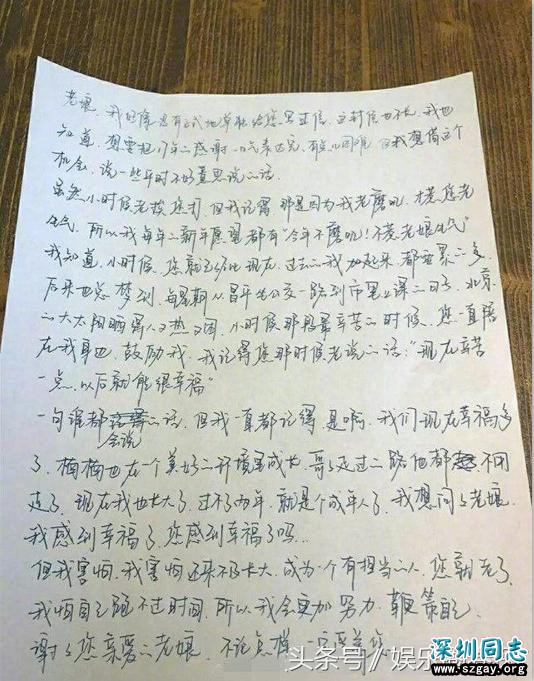 老娘，我好像没有正式地单独给您写过信，这封信也不长，我也
知道，想要把17年的感谢一口气表达完，有点儿困难，但我想借这个
机会，说一些平时不好意思说的话。
虽然小时候老挨您打，但我记得，那是因为我老磨叽，才惹您老
生气，所以我每年的新年愿望都有“今年不磨叽！不惹老娘生气”
我知道，小时候，您就 比现在，过去的我加起来都要累的多，
后来也总梦到，每星期从昌平坐公交一路到市里上课的日子，北京
的大太阳晒得人又热又困，小时候那段最辛苦的时候，您一直陪
在我身边，鼓励我，我记得您那时候老说的话：“现在辛苦
一点，以后就能很幸福”
一句谁都会说的话，但我一直都记得，是啊，我们现在幸福多
了，楠楠也在一个美好的环境里成长，哥哥走过的路他都不用
走了，现在我也长大了，过不了两年，就是个成年人了，我想问问老娘，
我感到幸福了，您感到幸福了吗...
但我害怕，我害怕还来不及长大，成为一个有担当的人，您就老了，
我怕自己跑不过时间，所以我会更加努力，鞭策自己，
谢谢您亲爱的老娘，不论怎样一
头条号/娱乐
深圳同志
www.szgay.org